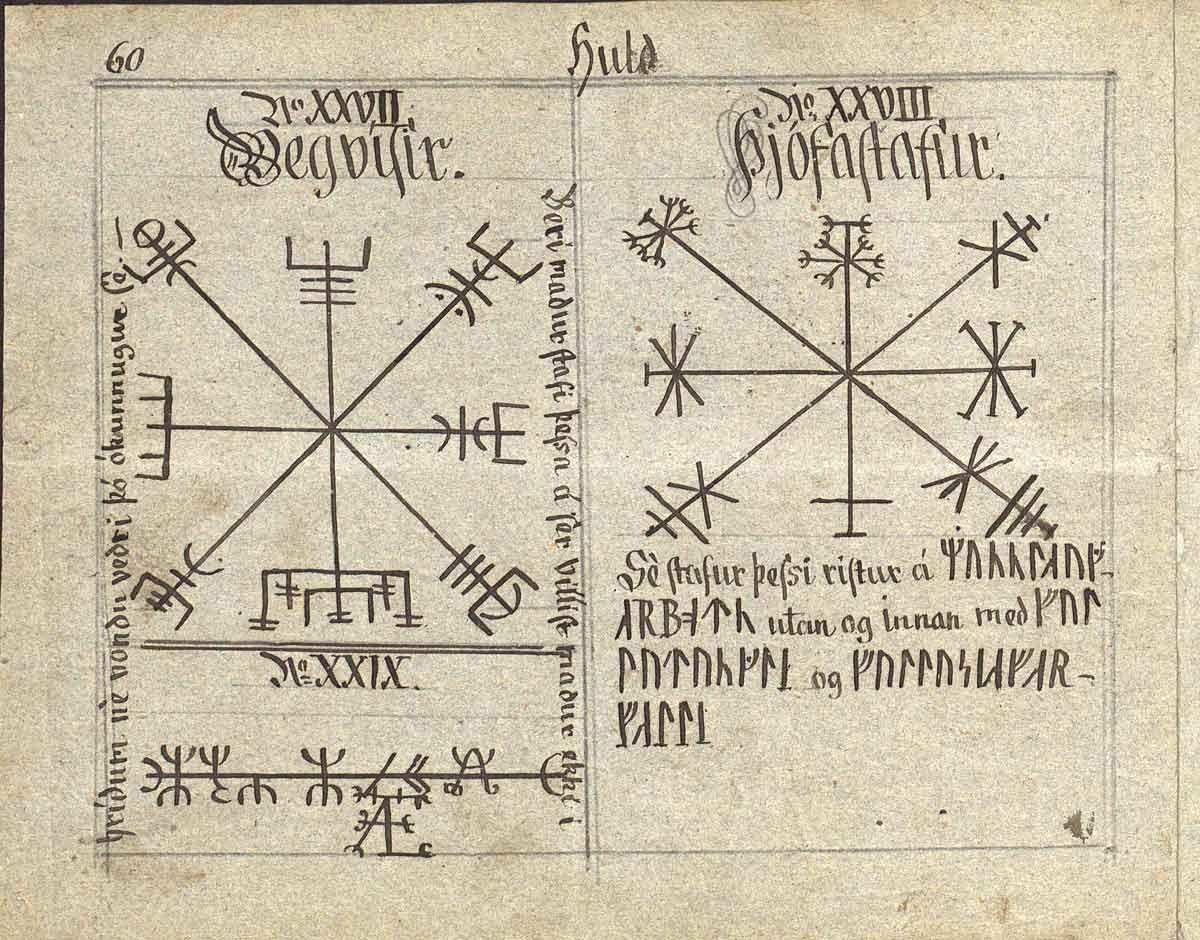 60
Huld
No XXVII.
Vegvísir.
Beri madur stafi þessa á sér villist madur ekki í
hrídum né vondu vedri þó ókunnugur sé.—
No XXIX.
No XXVIII.
Þjófastafur.
Sè stafur þessi ristur á
utan og innan med
og